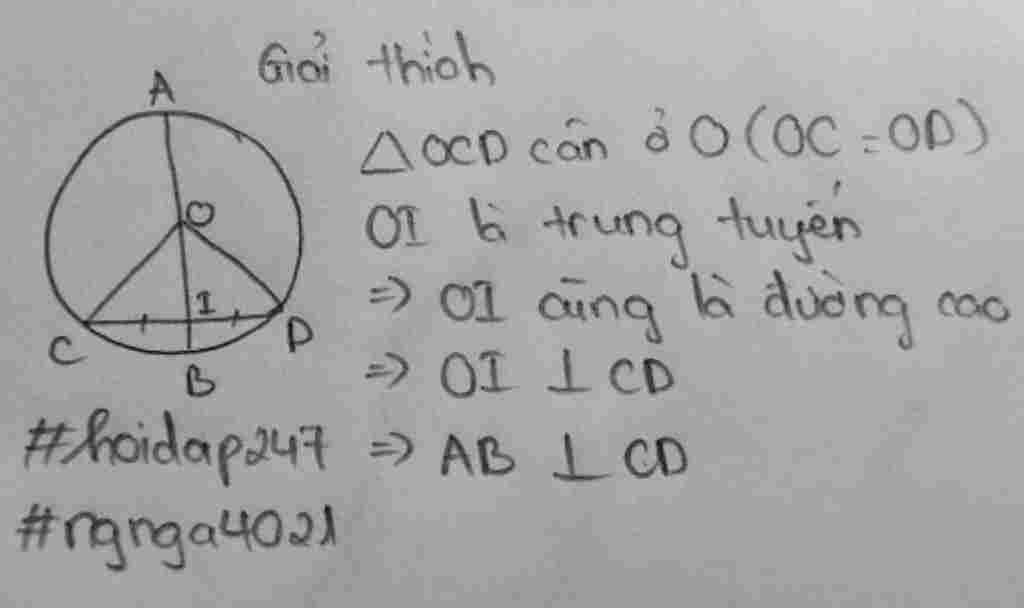 Giải thích
A
△OCD cân ở O (OC = OD)
O
OI là trung tuyến
I
=> OI cũng là đường cao
C
D
=> OI ⊥ CD
B
#hoidap247 => AB ⊥ CD
#ngnga4021